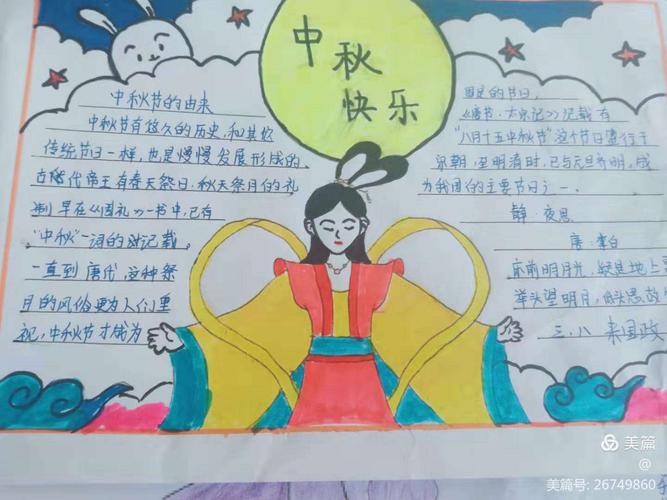 中秋
快乐
中秋节的由来
中秋节有悠久的历史,和其他
传统节日一样,也是慢慢发展形成的,
古代帝王有春天祭日,秋天祭月的礼
制,早在《周礼》一书中,已有
"中秋"一词的记载。
一直到唐代,这种祭
月的风俗更为人们重
视,中秋节才成为
固定的节日,
《唐书·太宗记》记载有
"八月十五中秋节"这个节日盛行于
宋朝,至明清时,已与元旦齐明,成
为我国的主要节日之一。
静·夜思
唐·李白
床前明月光,疑是地上
举头望明月,低头思故
三.八 来国政
美篇
@
美篇号: 26749860